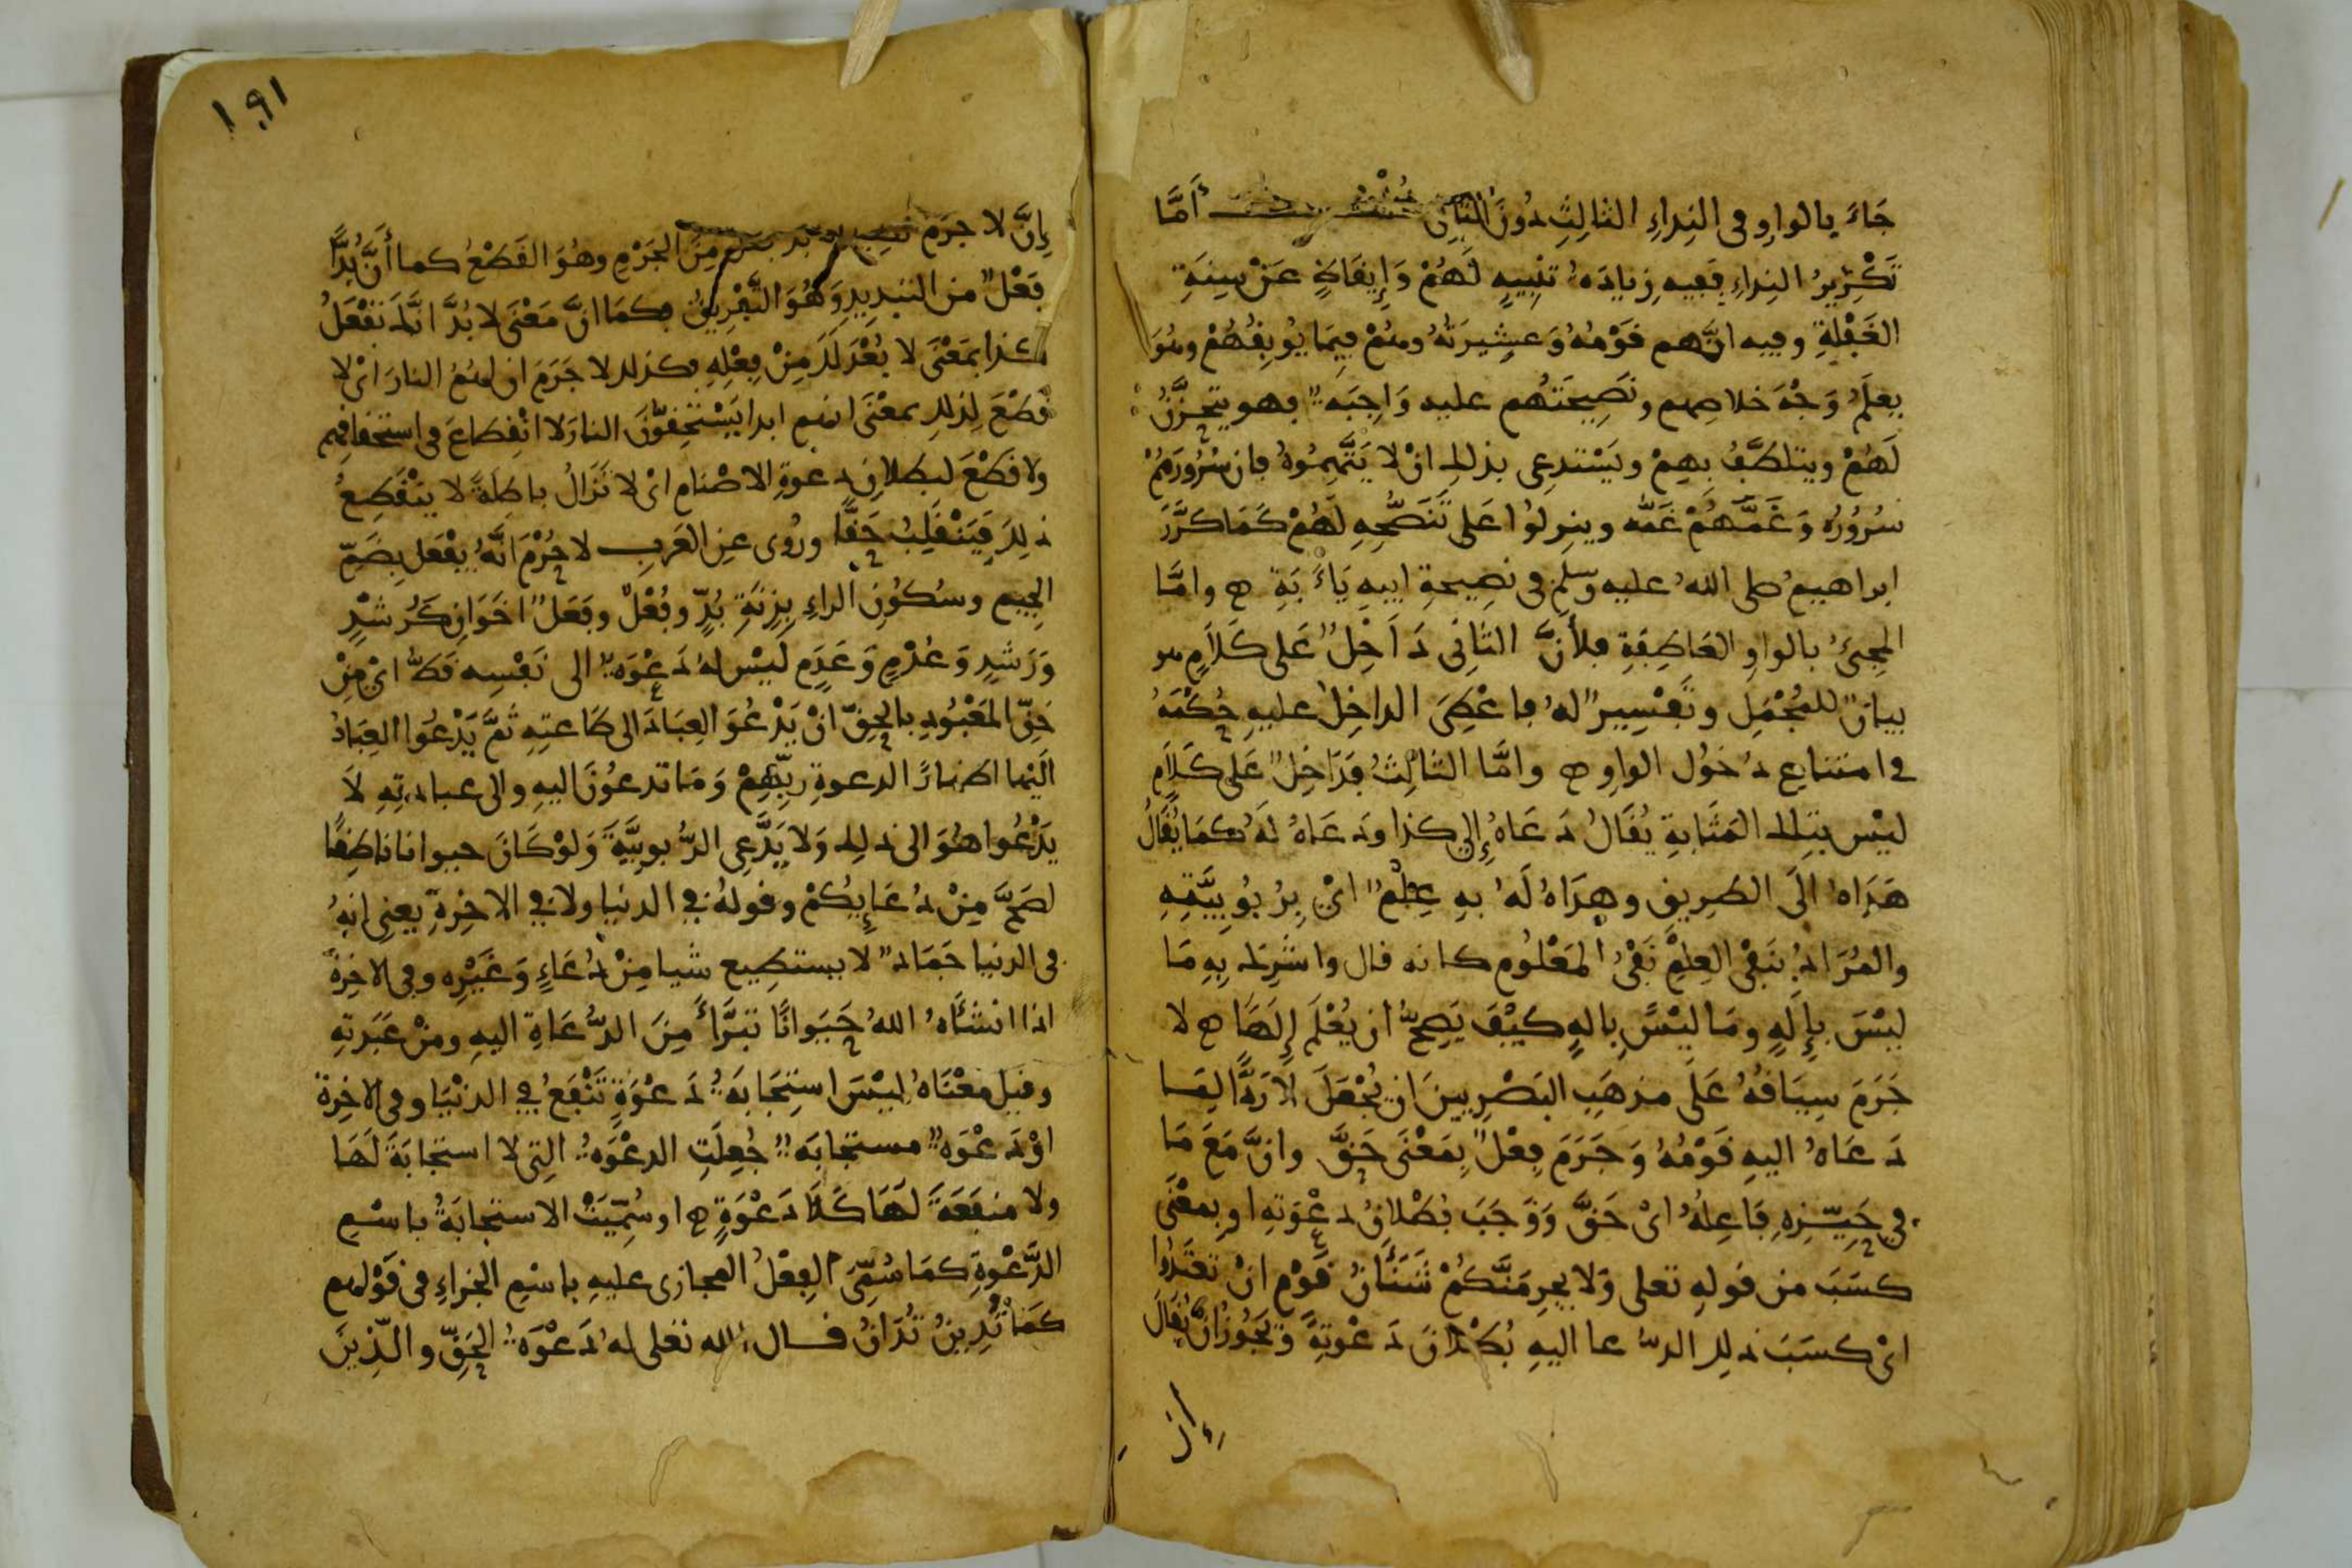 جَاءَ بالواوِ فى النِداءِ الثالِثِ دُونَ الثانِى قُلْتُ أَمَّا
تَكْرِيرُ النِداءِ فَفِيهِ زِيادَةُ تنْبِيهٍ لَهُمْ وَإِيقَاظٍ عَنْ سِنَةِ
الغَفْلَةِ وفيه انَّهم قَوْمُهُ وَعَشِيرَتُهُ وهُمْ فِيمَا يُوبِقُهُمْ وهُوَ
يعلَمُ وَجْهَ خلاصِهم ونَصِيحَتُهم عليه وَاجِبَةٌ فهو يتحزَّنُ
لَهُمْ ويتلطَّفُ بِهِمْ ويَسْتدعِى بذلك انْ لا يَتَّهِمُوهُ فان سُرُورَهُمْ
سُرُورُه وَغَمَّهُمْ غَمُّه وينزِلُوا عَلى تَنَصُّحِهِ لَهُمْ كَمَا كَرَّرَ
ابراهيمُ صلى اللهُ عليه وسلم فى نصِيحةِ ابيهِ يَاأَبَتِ ه وامَّا
المجِئُ بالواوِ العَاطِفَةِ فلأنَّ الثانِى دَاخِلٌ عَلى كَلَامٍ هو
بيانٌ للمُجْمَلِ وتَفْسِيرٌ لهُ فاعْطِىَ الداخِلُ عليهِ حُكْمَهُ
فى امتناعِ دخُولِ الواوِ ه وامَّا الثالِثُ فدَاخِلٌ عَلى كَلَامٍ
ليْس بتلك المَثَابةِ يُقَالُ دَعَاهُ إِلى كذا ودَعَاهُ لَهُ كمَا يُقَالُ
هَدَاهُ الَى الطرِيقِ وهدَاهُ لَهُ بهِ عِلْمٌ اىْ بِرُبُوبِيَّتِهِ
والمُرَادُ بنَفْىِ العِلْمِ نَفْىُ المَعْلُومِ كانه قال واشْرِكَ بِهِ مَا
ليْسَ بإِلَهٍ ومَا ليْسَ بِالهٍ كيْفَ يَصِحُّ ان يُعْلَمَ إِلَهًا ه لا
جَرَمَ سِيَاقُهُ عَلَى مذهَبِ البَصْرِيينَ ان يُجْعَلَ لا رَدًّا لِمَا
دَعَاهُ اليهِ قَوْمُهُ وَجَرَمَ فِعْلٌ بِمَعْنَى حَقَّ وانَّ مَعَ مَا
فى حَيِّزِهِ فَاعِلُهُ اىْ حَقَّ وَوَجَبَ بُطْلانُ دعْوَتِهِ او بِمعْنَى
كسَبَ من قولهِ تعلى وَلا يجرِمَنَّكُمْ شَنَئَانُ قَوْمٍ انْ تعْتَدُوا
اىْ كسَبَ ذلِك الدُّعا اليهِ بُطْلَانَ دَعْوتِهِ وَيَجُوزُ انْ يُقَالَ
إِنَّ
١٩١
إِنَّ لا جرَم نظير لا بد فعل مِنَ الجَرْمِ وهُوَ القَطْعُ كما أَنَّ بُدًّا
فعْلٌ من التبدِيدِ وَهُوَ التَّفْرِيقُ فكمَا انَّ مَعْنَى لا بُدَّ انَّكَ تفْعَلُ
كذا بمَعْنَى لا بُعْدَ لَكَ مِنْ فِعْلِهِ فكذلك لا جَرَمَ ان لهُمُ النارَ اىْ لا
قطْعَ لِذلِك بمعْنَى انهم ابدا يَسْتحِقُّونَ النارَ لا انْقِطاعَ فى استحْقاقِهم
ولا قطْعَ لبطلانِ دعوةِ الاصْنامِ اىْ لا تَزَالُ باطِلَةً لا ينْقَطِعُ
ذلِكَ فَيَنْقَلِبُ حَقًّا ورُوى عنِ العَربِ لا جُرْمَ انَّهُ يفْعَل بِضَمِّ
الجيم وسُكُونِ الراءِ بِزِنَةِ بُدٍّ وفُعْلٌ وفَعَلٌ اخَوَانِ كَرُشْدٍ
وَرَشَدٍ وَعُدْمٍ وَعَدَمٍ لَيْس لهُ دَعْوَةٌ الى نَفْسِه قَطُّ اىْ مِنْ
حَقِّ المَعْبُودِ بالحَقِّ انْ يَدْعُوَ العِبَادَ الى طَاعتِهِ ثمَّ يَدْعُوا العِبَادُ
الَيْها اظهارًا لدعوةِ ربِّهِمْ وَمَا تدعُوْنَ اليهِ والى عبادتِهِ لَا
يَدْعُوا هُوَ الى ذلِك وَلا يَدَّعِى الرُّبوبيَّةَ وَلوْ كَانَ حيوانا ناطِقًا
لضَجَّ مِنْ دُعَايِكُمْ وقولهُ فى الدنيا ولا فى الاخِرَةِ يعنِى انهُ
فى الدنيا جَمَادٌ لا يستطِيع شيا مِنْ دُعَاءٍ وَغَيْرِهِ وفى الاخِرَةِ
اذا انشَأَهُ اللهُ حَيَوانًا تبَرَّأَ مِنَ الدُّعَاةِ اليهِ ومنْ عَبَدتِهِ
وقيل معْنَاهُ ليْسَ استِجَابَةُ دَعْوَةٍ تَنْفَعُ فى الدنْيَا وفى الاخِرة
اوْ دَعْوَةٌ مستجَابَةٌ جُعِلَتِ الدعْوَةُ التِى لا استجَابَةَ لَهَا
ولا منفَعَةَ لَهَا كَلَا دَعْوَةٍ ه او سُمِّيَتْ الاستجابَةُ باسْمِ
الدَّعْوةِ كمَا سُمِّىَ الفِعْلُ المجازى عليهِ باسْمِ الجزاءِ فى قَوْلهم
كمَا تُدِينُ تُدَانُ قال الله تعلى لهُ دَعْوَةُ الحَقِّ والَّذِينَ